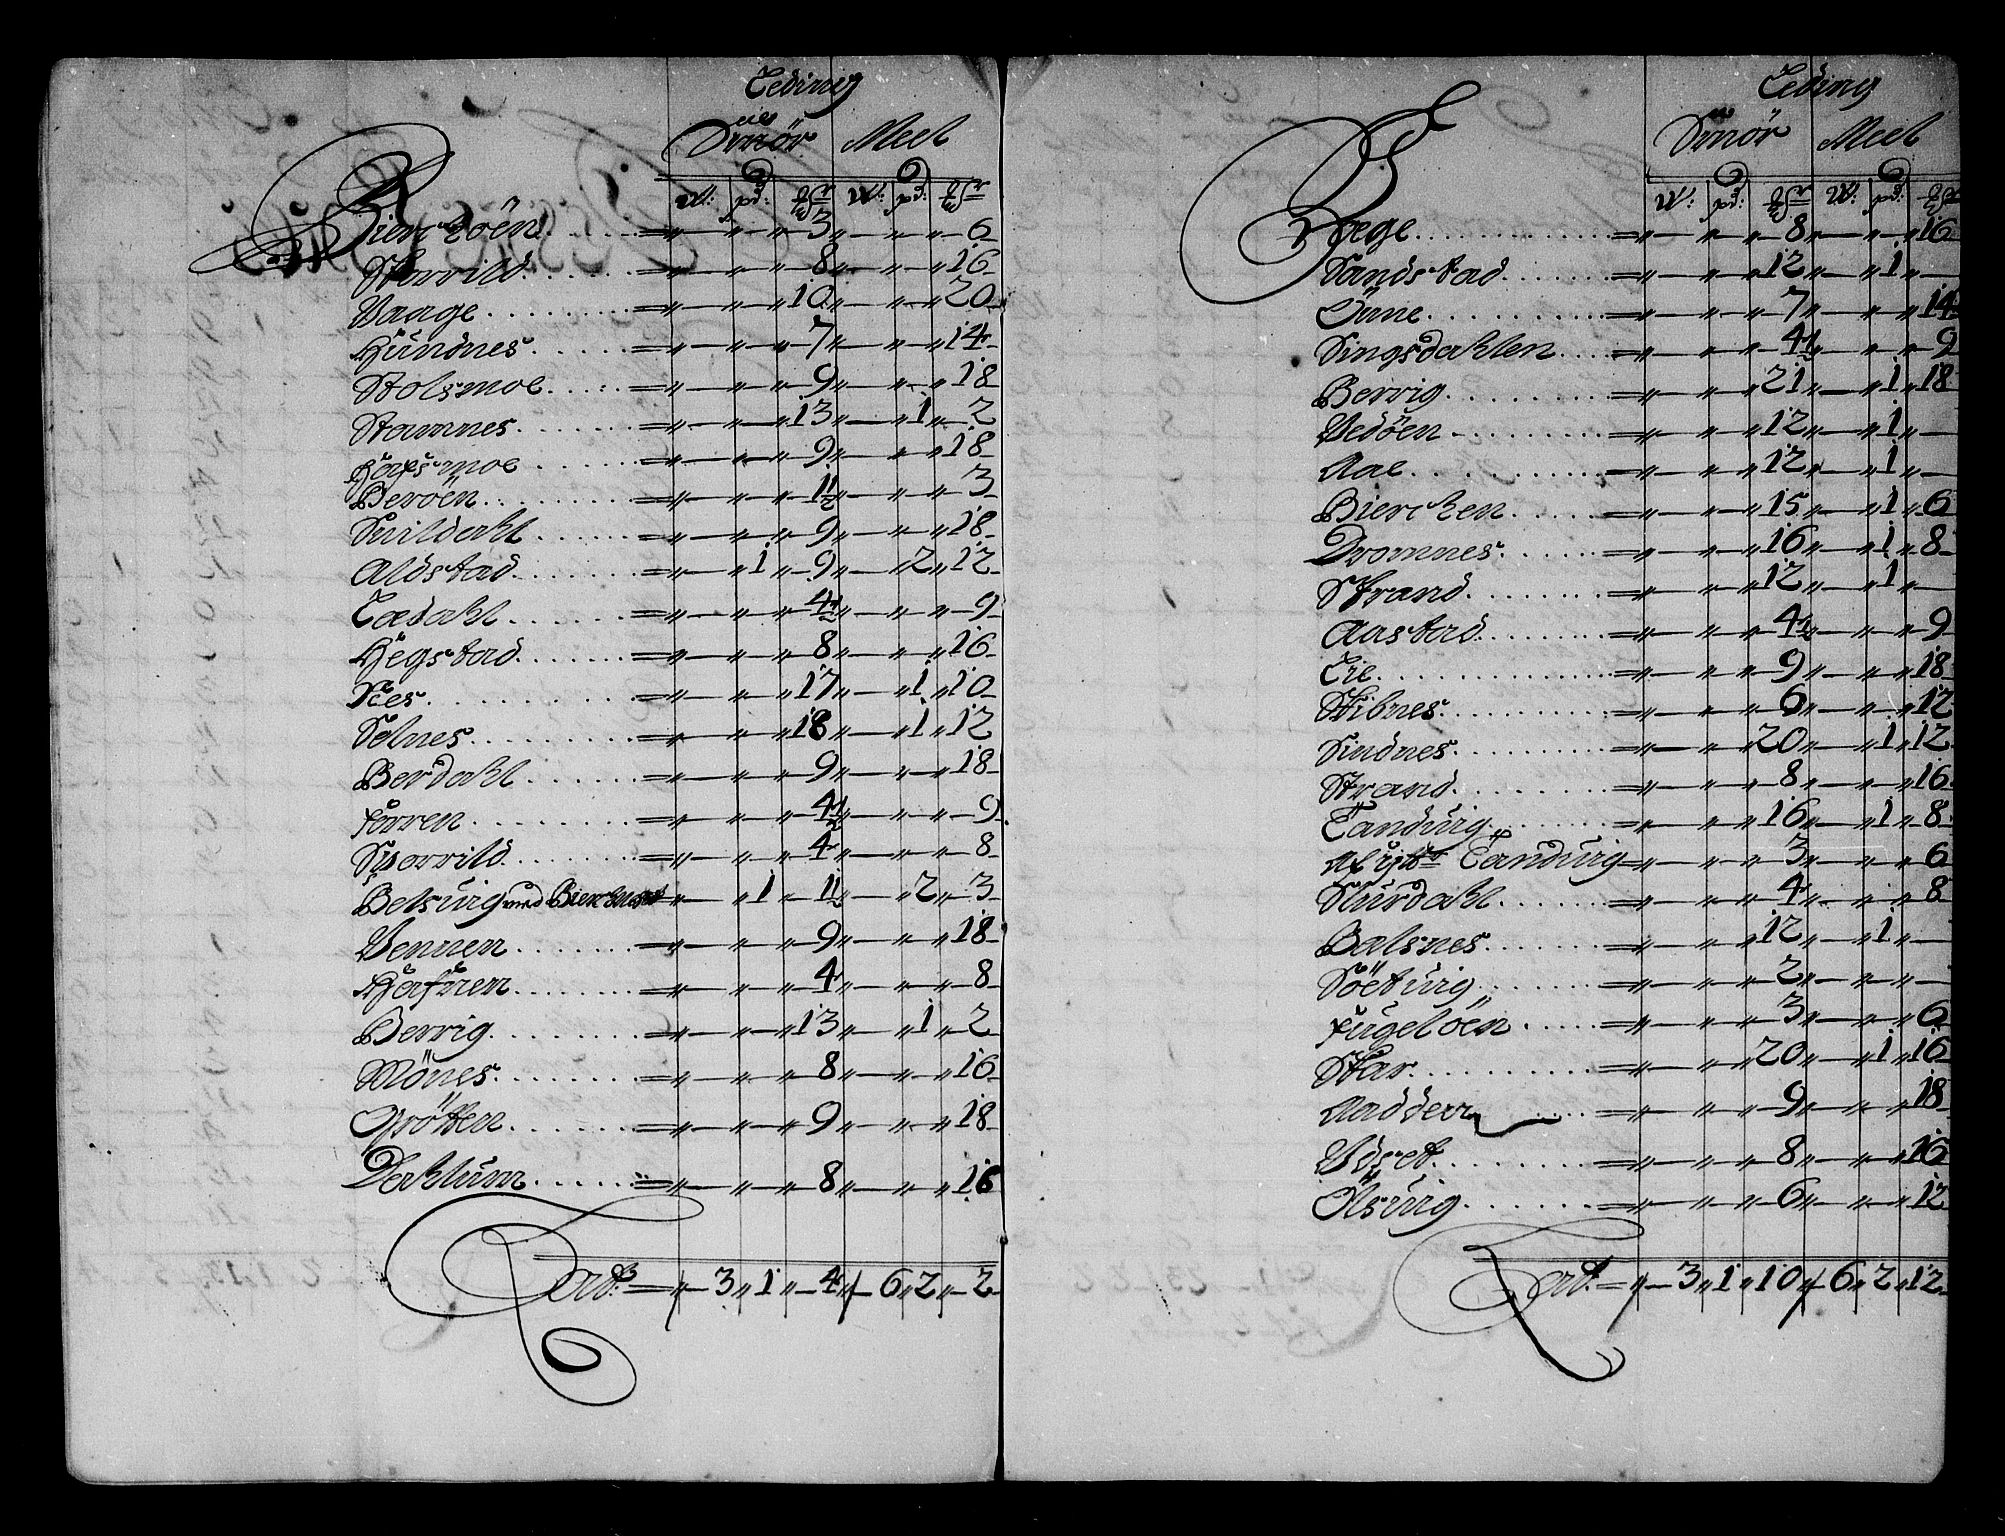 Leding
Smör Meel
W: pd: W: pd:
Bierchöen = „ — „ — „ 3 „ — „ — „ 6
Storvild = „ — „ — „ 8 „ — „ — „ 16
Vaage = „ — „ — „ 10 „ — „ — „ 20
Hundnes = „ — „ — „ 7 „ — „ — „ 14
Stolsmoe = „ — „ — „ 9 „ — „ — „ 18
Stamnes = „ — „ — „ 13 „ — „ 1 „ 2
Hopsmoe = „ — „ — „ 9 „ — „ — „ 18
Beröen = „ — „ — „ 1½ „ — „ — „ 3
Snildahl = „ — „ — „ 9 „ — „ — „ 18
Aldstad = „ — „ 1 „ 9 „ — „ 2 „ 12
Lædahl = „ — „ — „ 4½ „ — „ — „ 9
Hegstad = „ — „ — „ 8 „ — „ — „ 16
Næs = „ — „ — „ 17 „ — „ 1 „ 10
Selnes = „ — „ — „ 18 „ — „ 1 „ 12
Berdahl = „ — „ — „ 9 „ — „ — „ 18
Forren = „ — „ — „ 4½ „ — „ — „ 9
Sporrild = „ — „ — „ 4 „ — „ — „ 8
Belsvig med = „ — „ 1 „ 1½ „ — „ 2 „ 3
Vennen = „ — „ — „ 9 „ — „ — „ 18
Hafnen = „ — „ — „ 4 „ — „ — „ 8
Berrig = „ — „ — „ 13 „ — „ 1 „ 2
Mönes = „ — „ — „ 8 „ — „ — „ 16
Grötten = „ — „ — „ 9 „ — „ — „ 18
Dahlum = „ — „ — „ 8 „ — „ — „ 16
Lat: = „ 3 „ 1 „ 4 „ 6 „ 2 „ 2
Leding
Smör Meel
W: pd: W: pd:
Hæge = „ — „ — „ 8 „ — „ — „ 16
Sandstad = „ — „ — „ 12 „ — „ 1 „ —
Ünne = „ — „ — „ 7 „ — „ — „ 14
Singsdahlen = „ — „ — „ 4½ „ — „ — „ 9
Berrig = „ — „ — „ 21 „ — „ 1 „ 18
Vedöen = „ — „ — „ 12 „ — „ 1 „ —
Aae = „ — „ — „ 12 „ — „ 1 „ —
Bierchen = „ — „ — „ 15 „ — „ 1 „ 6
Dromnes = „ — „ — „ 16 „ — „ 1 „ 8
Strand = „ — „ — „ 12 „ — „ 1 „ —
Aastad = „ — „ — „ 4½ „ — „ — „ 9
Lie = „ — „ — „ 9 „ — „ — „ 18
Stibnes = „ — „ — „ 6 „ — „ — „ 12
Sundnes = „ — „ — „ 20 „ — „ 1 „ 12
Strand = „ — „ — „ 8 „ — „ — „ 16
Tandvig = „ — „ — „ 16 „ — „ 1 „ 8
Tandvig = „ — „ — „ 3 „ — „ — „ 6
Slurdahl = „ — „ — „ 4 „ — „ — „ 8
Balsnes = „ — „ — „ 12 „ — „ 1 „ —
Söetvig = „ — „ — „ 2 „ — „ — „ —
Fugelöen = „ — „ — „ 3 „ — „ — „ 6
Star = „ — „ — „ 20 „ — „ 1 „ 16
Aadderr = „ — „ — „ 9 „ — „ — „ 18
Vdset = „ — „ — „ 8 „ — „ — „ 16
Ölsvig = „ — „ — „ 6 „ — „ — „ 12
Lat: = „ 3 „ 1 „ 10 „ 6 „ 2 „ 12